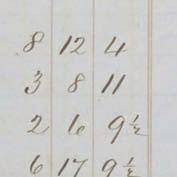 8 12 4
3 8 11
2 6 9½
6 17 9½